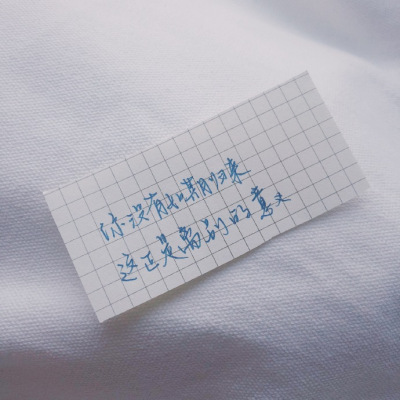 你没有如期归来
这正是离别的意义